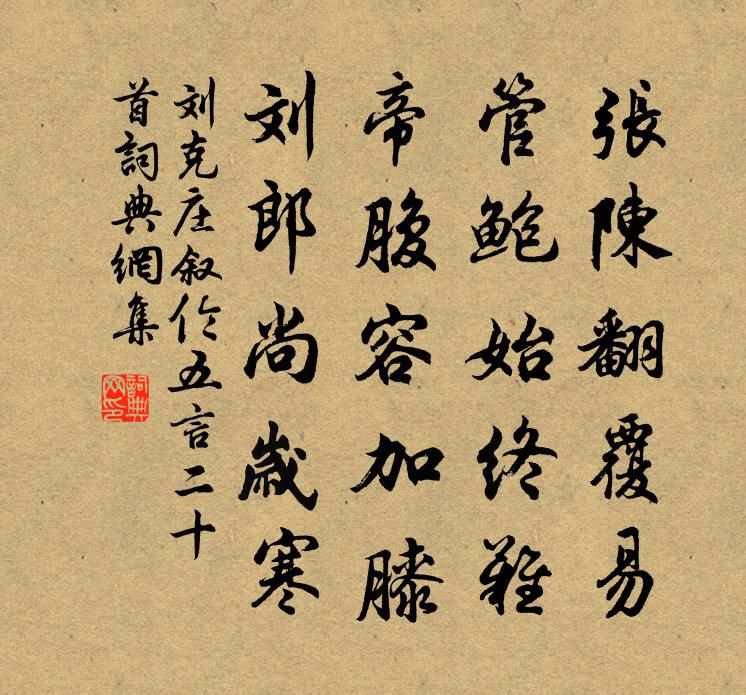 張陳翻覆易
管鮑始終難
帝腹容加膝
刘郎尚歲寒
刘克庄叙伦五言二十
首詞典網集
詞典
网印